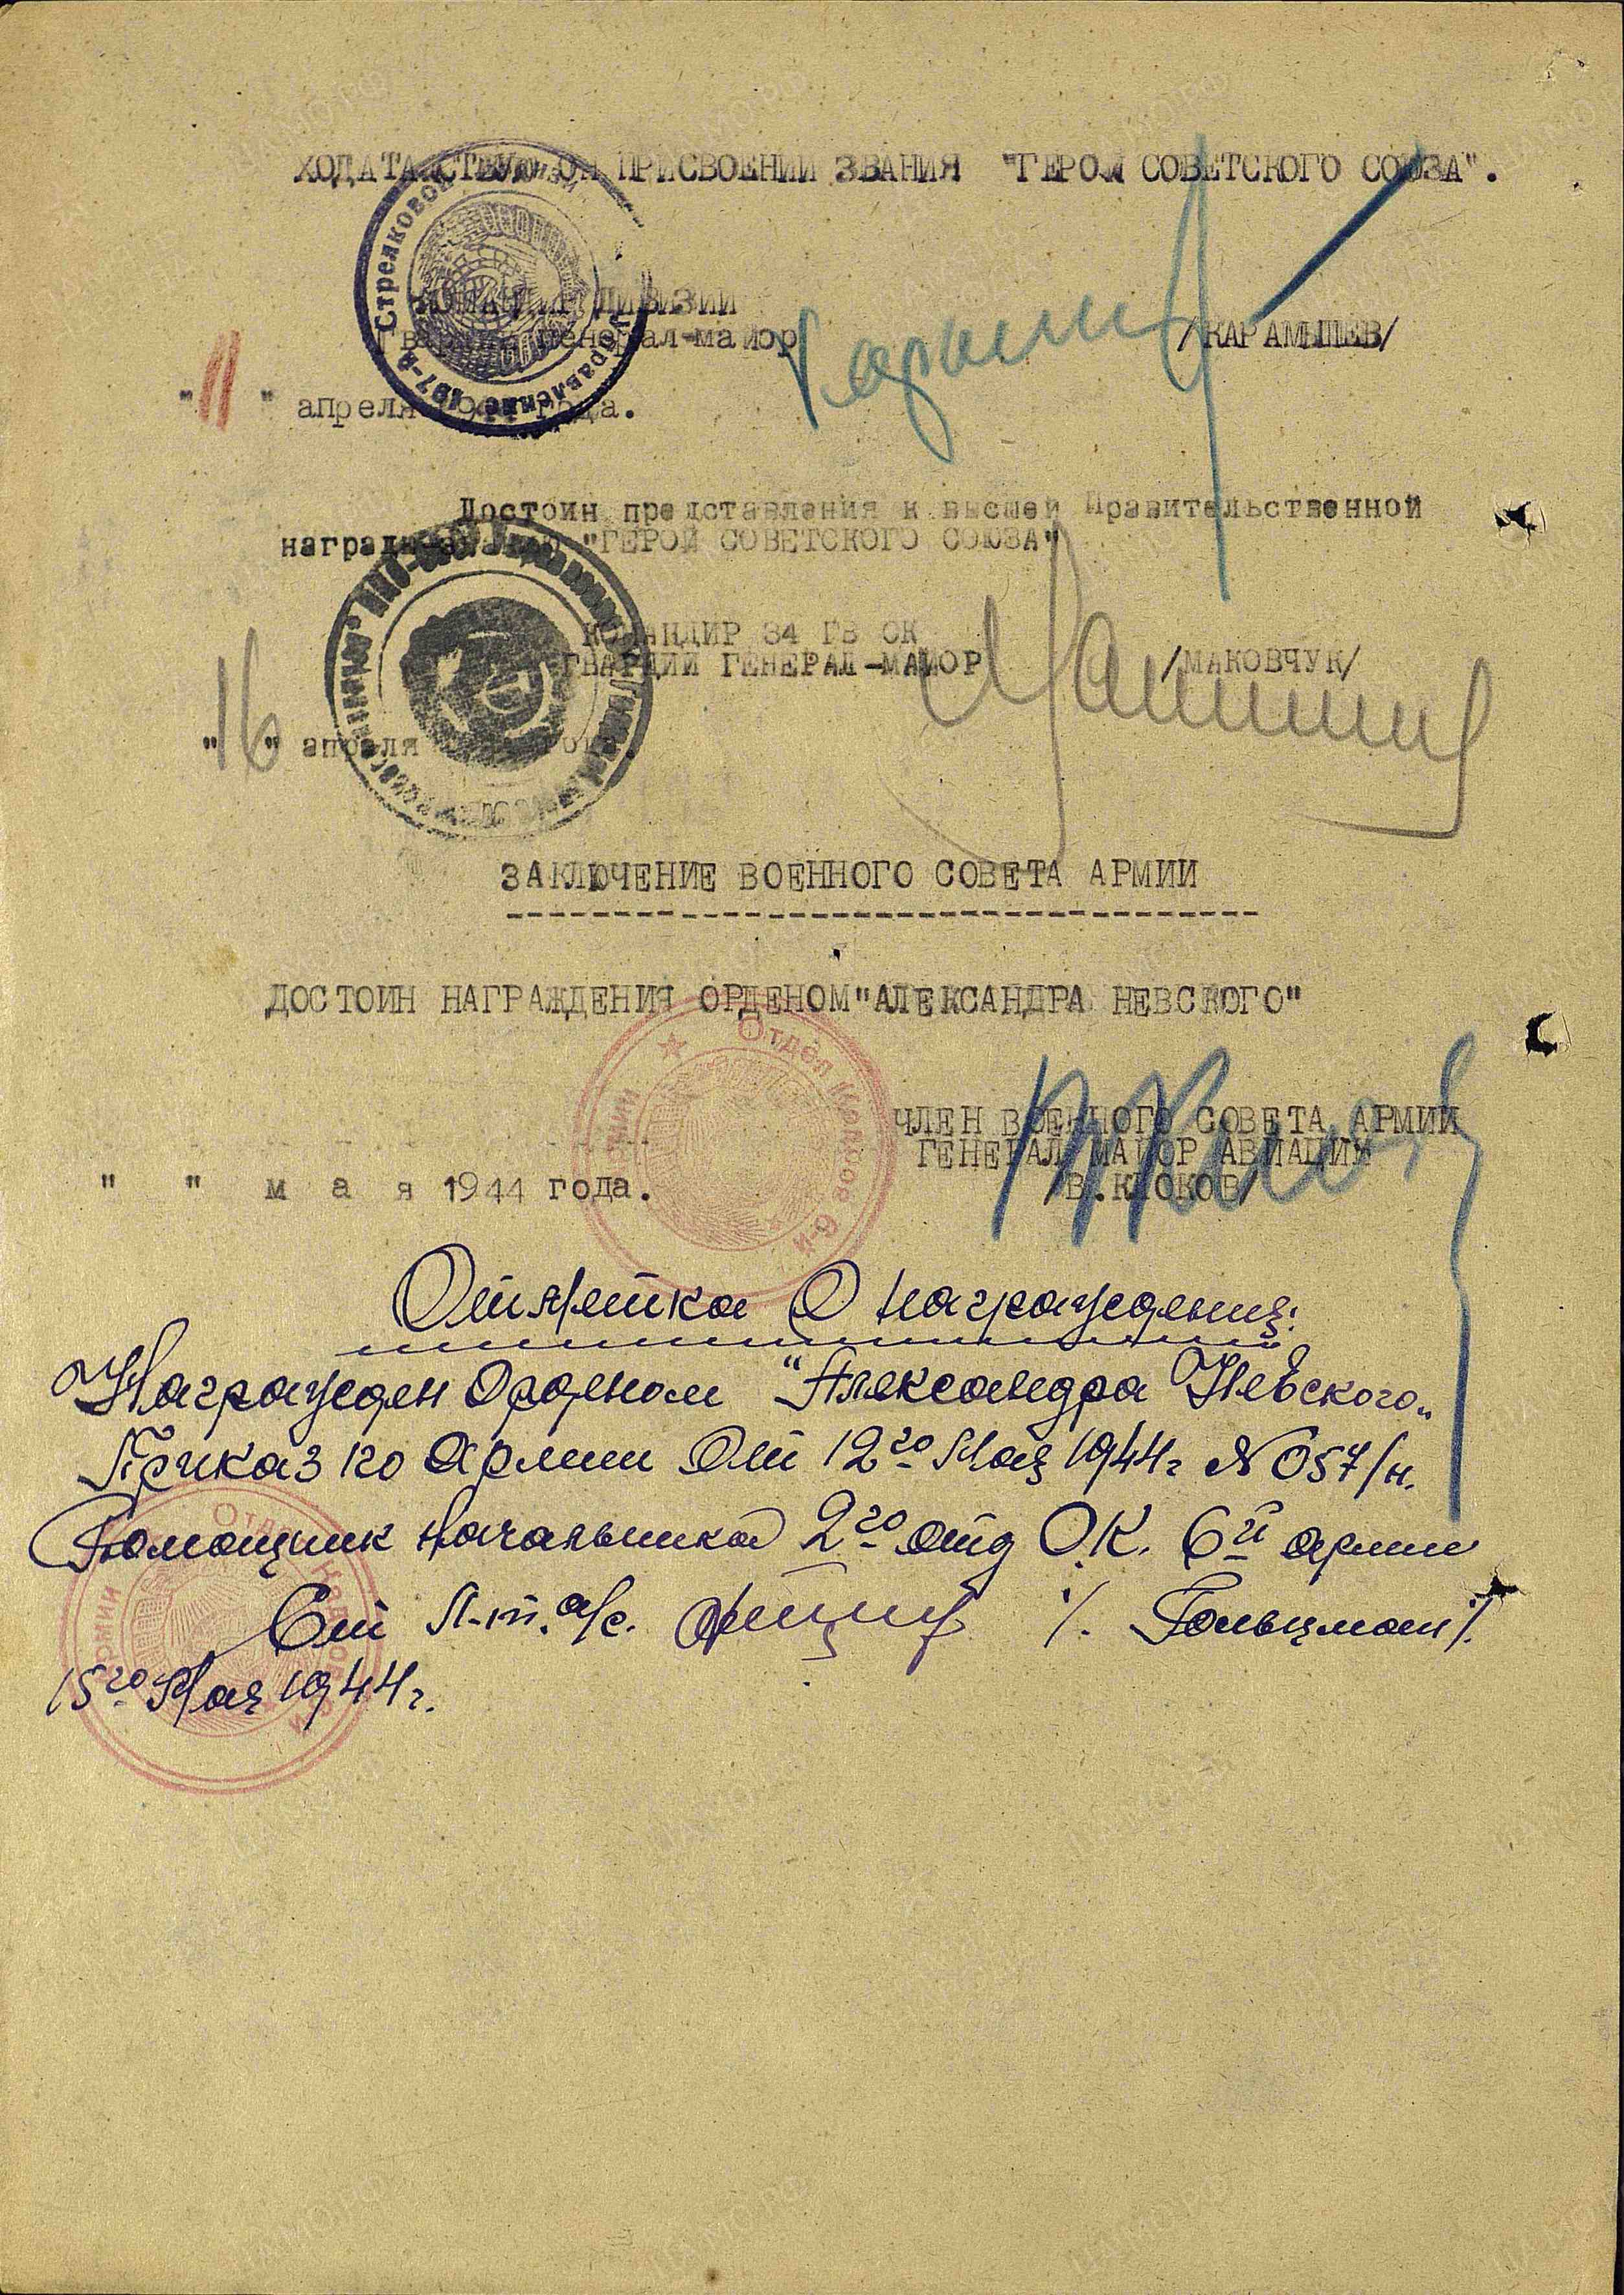 ХОДАТАЙСТВУЮ ОН ПРИСВОЕНИИ ЗВАНИЯ "ГЕРОЙ СОВЕТСКОГО СОЮЗА".
КОМАНДИР ДИВИЗИИ
Гвардии генерал-майор /КАРАМЫШЕВ/
"11" апреля года.
Стрелковой
Управление
Достоин представления к высшей Правительственной
награде "ГЕРОЙ СОВЕТСКОГО СОЮЗА"
КОМАНДИР 34 ГВ СК
ГВАРДИИ ГЕНЕРАЛ-МАЙОР /МАКОВЧУК/
"16" апреля
ЗАКЛЮЧЕНИЕ ВОЕННОГО СОВЕТА АРМИИ
ДОСТОИН НАГРАЖДЕНИЯ ОРДЕНОМ "АЛЕКСАНДРА НЕВСКОГО"
Отдел Кадров 6-й Армии
ЧЛЕН ВОЕННОГО СОВЕТА АРМИИ
ГЕНЕРАЛ МАЙОР АВИАЦИИ
/В.КЛОКОВ/
" " м а я 1944 года.
Отметка О награждении:
Награжден Орденом "Александра Невского"
Приказ по Армии От 12го Мая 1944г № 057/н.
Помощник Начальника 2го отд О.К. 6й армии
Ст Л-т. а/с. /. Гольцман /.
15го Мая 1944г.
Отдел Кадров 6-й Армии
ЦАМО.РФ